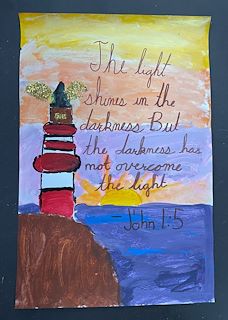 The light
shines in the
darkness But
the darkness has
not overcome
the light
- John 1:5